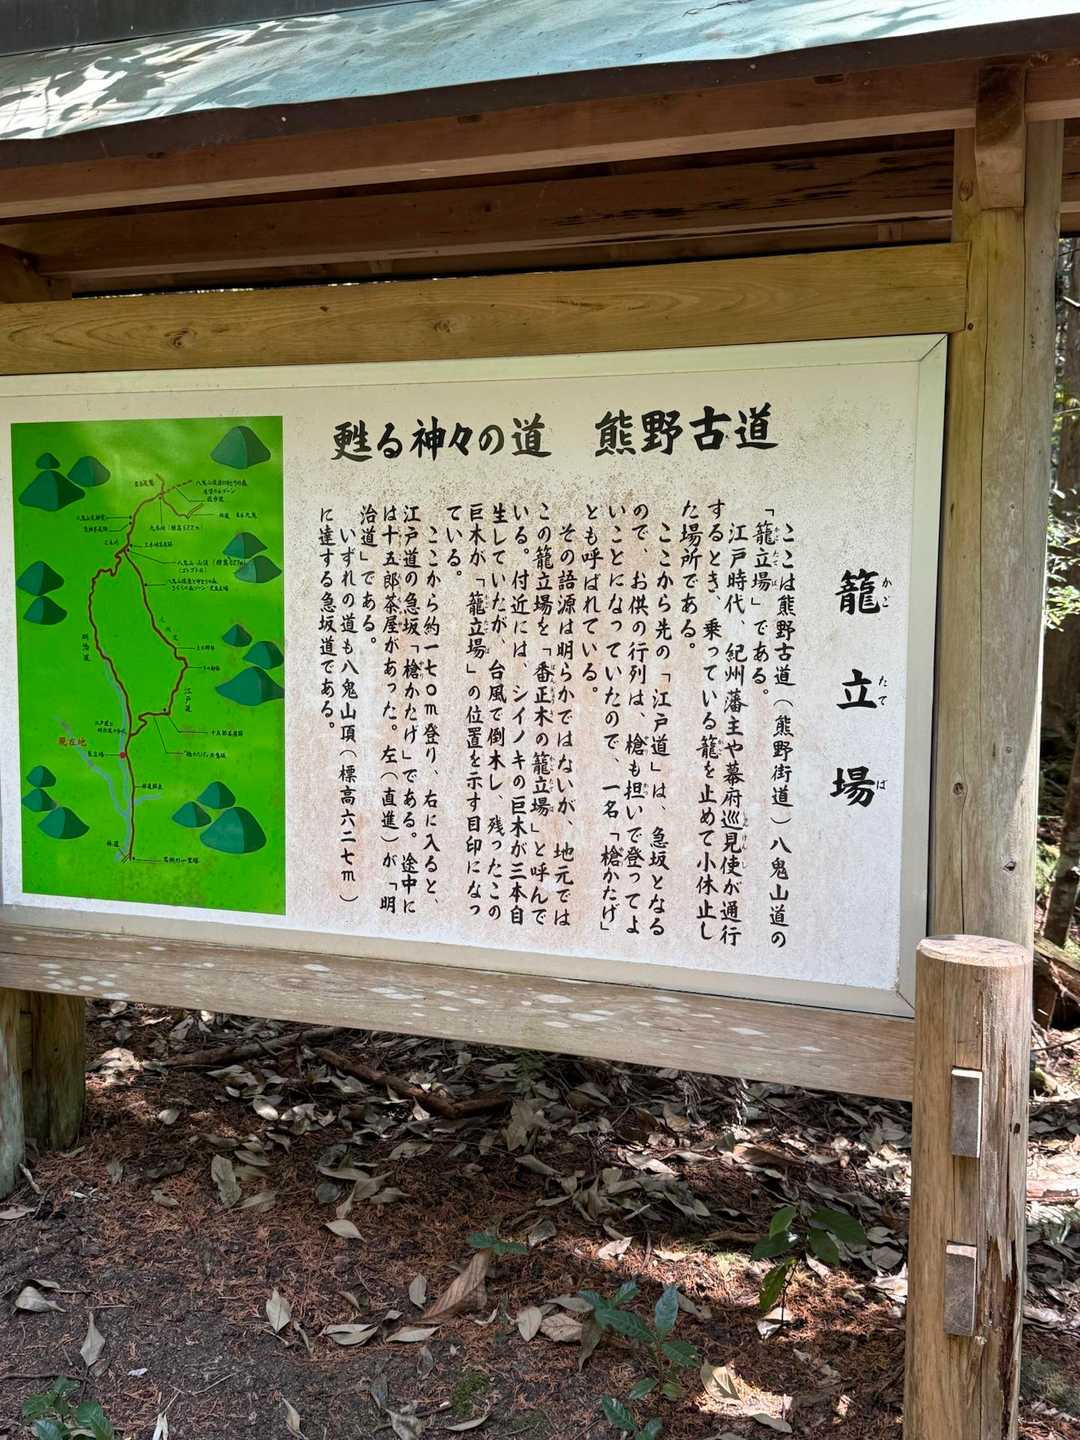 甦る神々の道　熊野古道
籠立場
かご
たて
ば
ここは熊野古道（熊野街道）八鬼山道の
「籠立場」である。
江戸時代、紀州藩主や幕府巡見使が通行
するとき、乗っている籠を止めて小休止し
た場所である。
ここから先の「江戸道」は、急坂となる
ので、お供の行列は、槍も担いで登ってよ
いことになっていたので、一名「槍かたげ」
とも呼ばれている。
その語源は明らかではないが、地元では
この籠立場を「番正木の籠立場」と呼んで
いる。付近には、シイノキの巨木が三本自
生していたが、台風で倒木し、残ったこの
巨木が「籠立場」の位置を示す目印になっ
ている。
ここから約一七〇m登り、右に入ると、
江戸道の急坂「槍かたげ」である。途中に
は十五郎茶屋があった。左（直進）が「明
治道」である。
いずれの道も八鬼山頂（標高六二七m）
に達する急坂道である。
九木峠（標高522m）
明治道
江戸道
十五郎茶屋跡
現在地
籠立場
林道